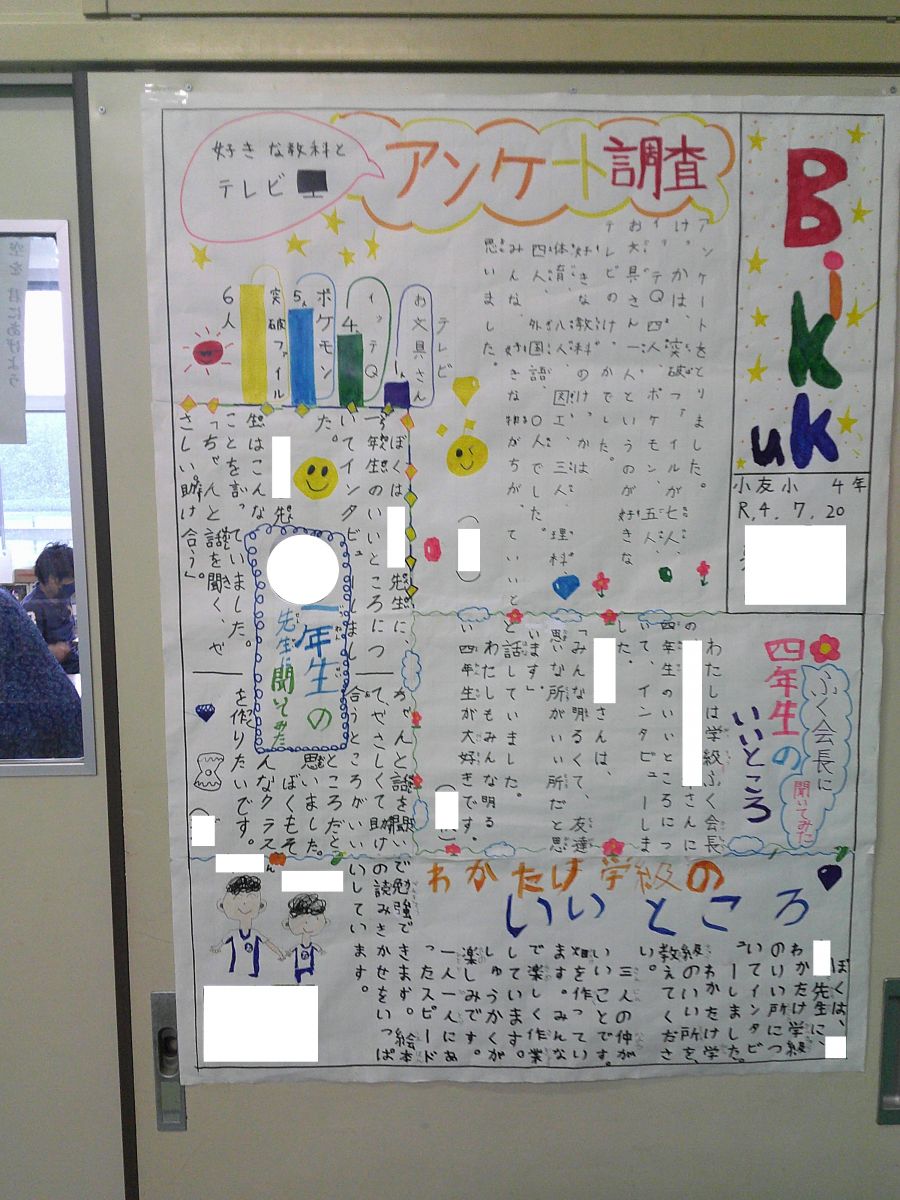 BiKKuk
小友小 4年
R,4.7.20
アンケート調査
好きな教科と
テレビ
アンケートをとりました。
け っかは、突破ファイルが七人、
イッテQ四人、ポケモン、五人
お文具さん一人というのが好きな
テレビのけっかでした。
好きな教科のけっかは、
体育、八人、図工、三人、理科、
四人、外国語、〇人でした。
みんな、好きな物がちがっていいと
思いました。
テレビ
お文具さん
1人
イッテQ
4人
ポケモン
5人
突破ファイル
6人
ふく会長に
聞いてみた
四年生の
いいところ
わたしは学級ふく会長
の さんに
四年生のいいところにつ
いて、インタビューしま
した。
さんは、
「みんな明るくて、友達
思いな所がいい所だと思
います」
と話していました。
わたしもみんな明る
い四年生が大好きです。
一年生の
先生に聞いてみた
ぼくは、 先生に、
一年生のいいところにつ
いてインタビューしまし
た。
先
生はこんな
ことを言っていました。
「ちゃんと話を聞く、や
さしい。助け合う」。
ちゃんと話を聞い
て、やさしくて助け
合うところがいい
ところだと
思いました。
ぼくもそ
んなクラス
を作りたいです。
わかたけ学級の
いいところ
ぼくは、
先生に、
わかたけ学級
のいい所につ
いてインタビ
ューしました。
わかたけ学
級のいい所を、
教えてくださ
い。
三人の仲が
いいことです。
畑を作ってい
ます。みんな
で楽しく作業
しています。
しゅうかくが
楽しみです。
一人一人にあ
ったスピード
で勉強できます。絵本
の読みきかせをいっぱ
いしています。